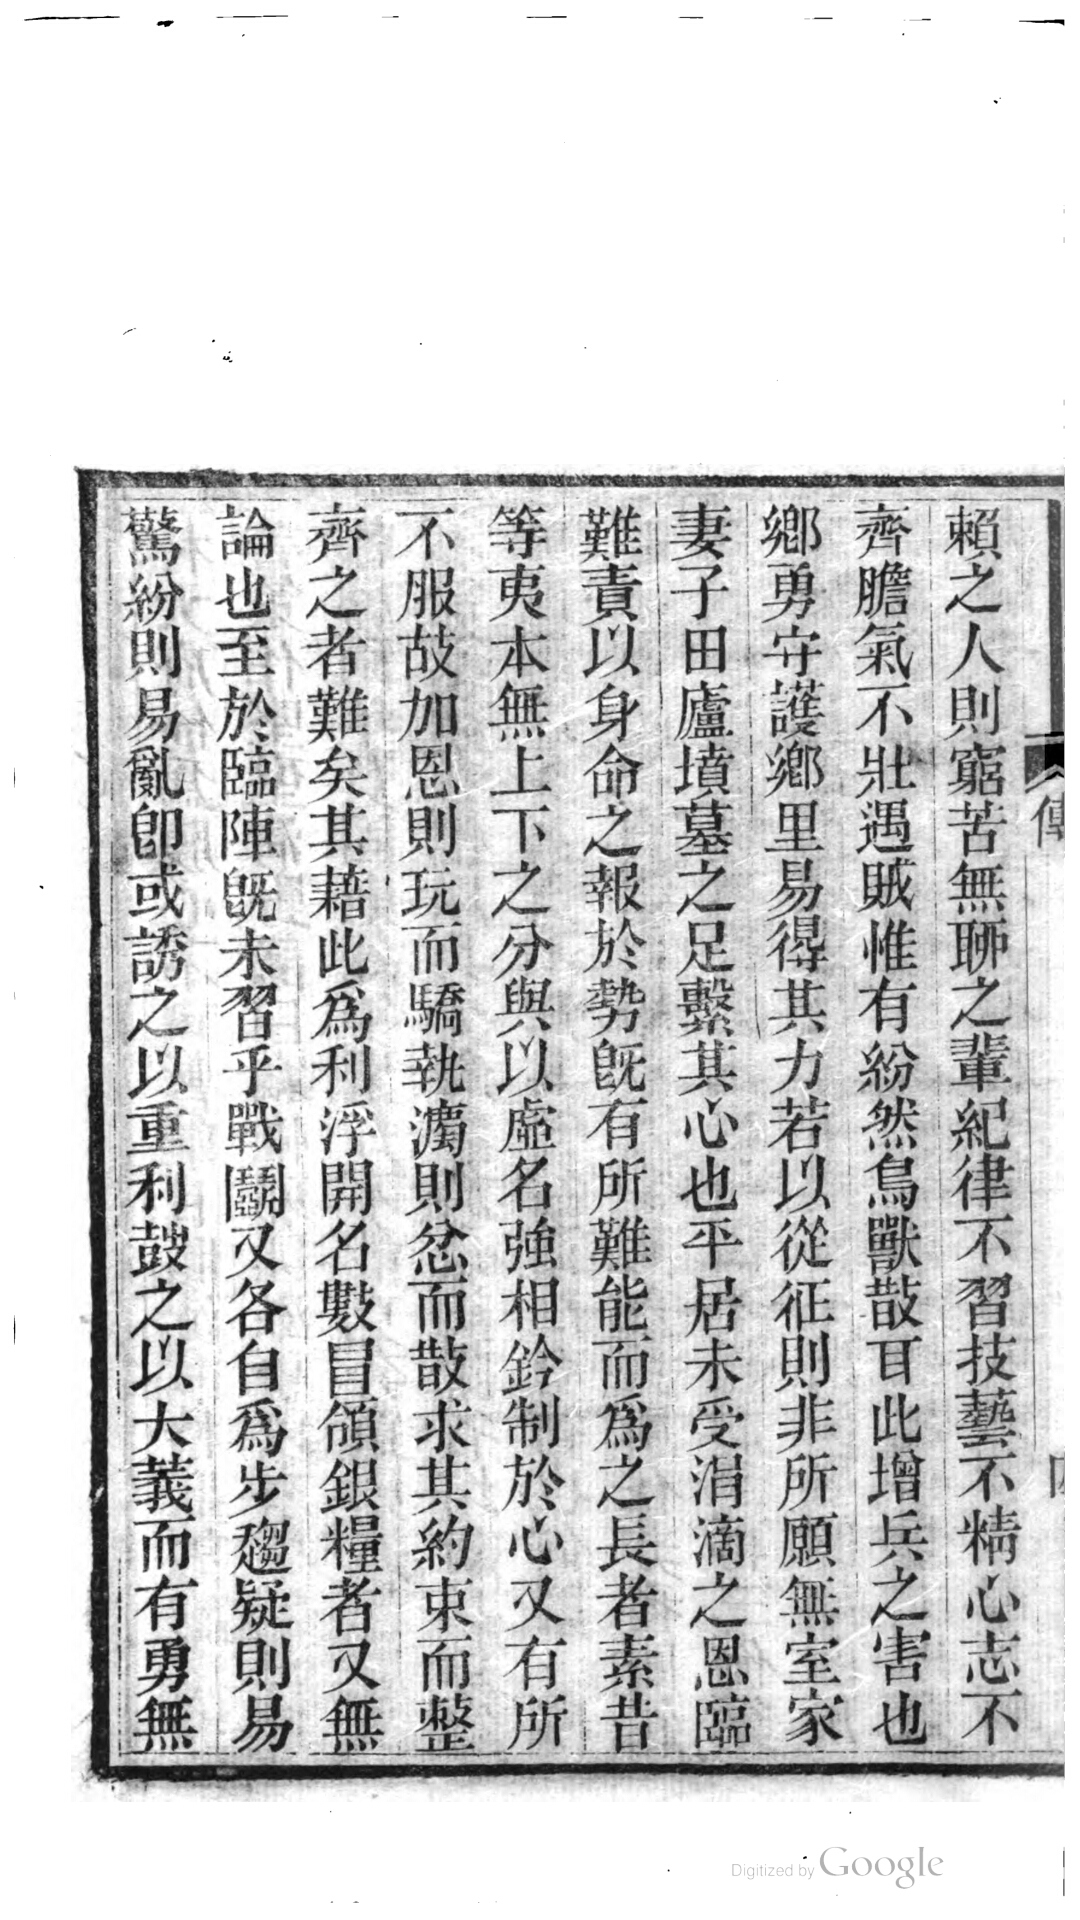 賴之人則窮苦無聊之輩紀律不習技藝不精心志不
齊膽氣不壯遇賊惟有紛然鳥獸散耳此增兵之害也
鄉勇守護鄉里易得其力若以從征則非所願無室家
妻子田廬墳墓之足繫其心也平居未受涓滴之恩臨
難責以身命之報於勢旣有所難能而爲之長者素昔
等夷本無上下之分與以虛名強相鈐制於心又有所
不服故加恩則玩而驕執灋則忿而散求其約束而整
齊之者難矣其藉此爲利浮開名數冒領銀糧者又無
論也至於臨陣旣未習乎戰鬭又各自爲步趨疑則易
驚紛則易亂卽或誘之以重利鼓之以大義而有勇無
傳
Digitized by Google